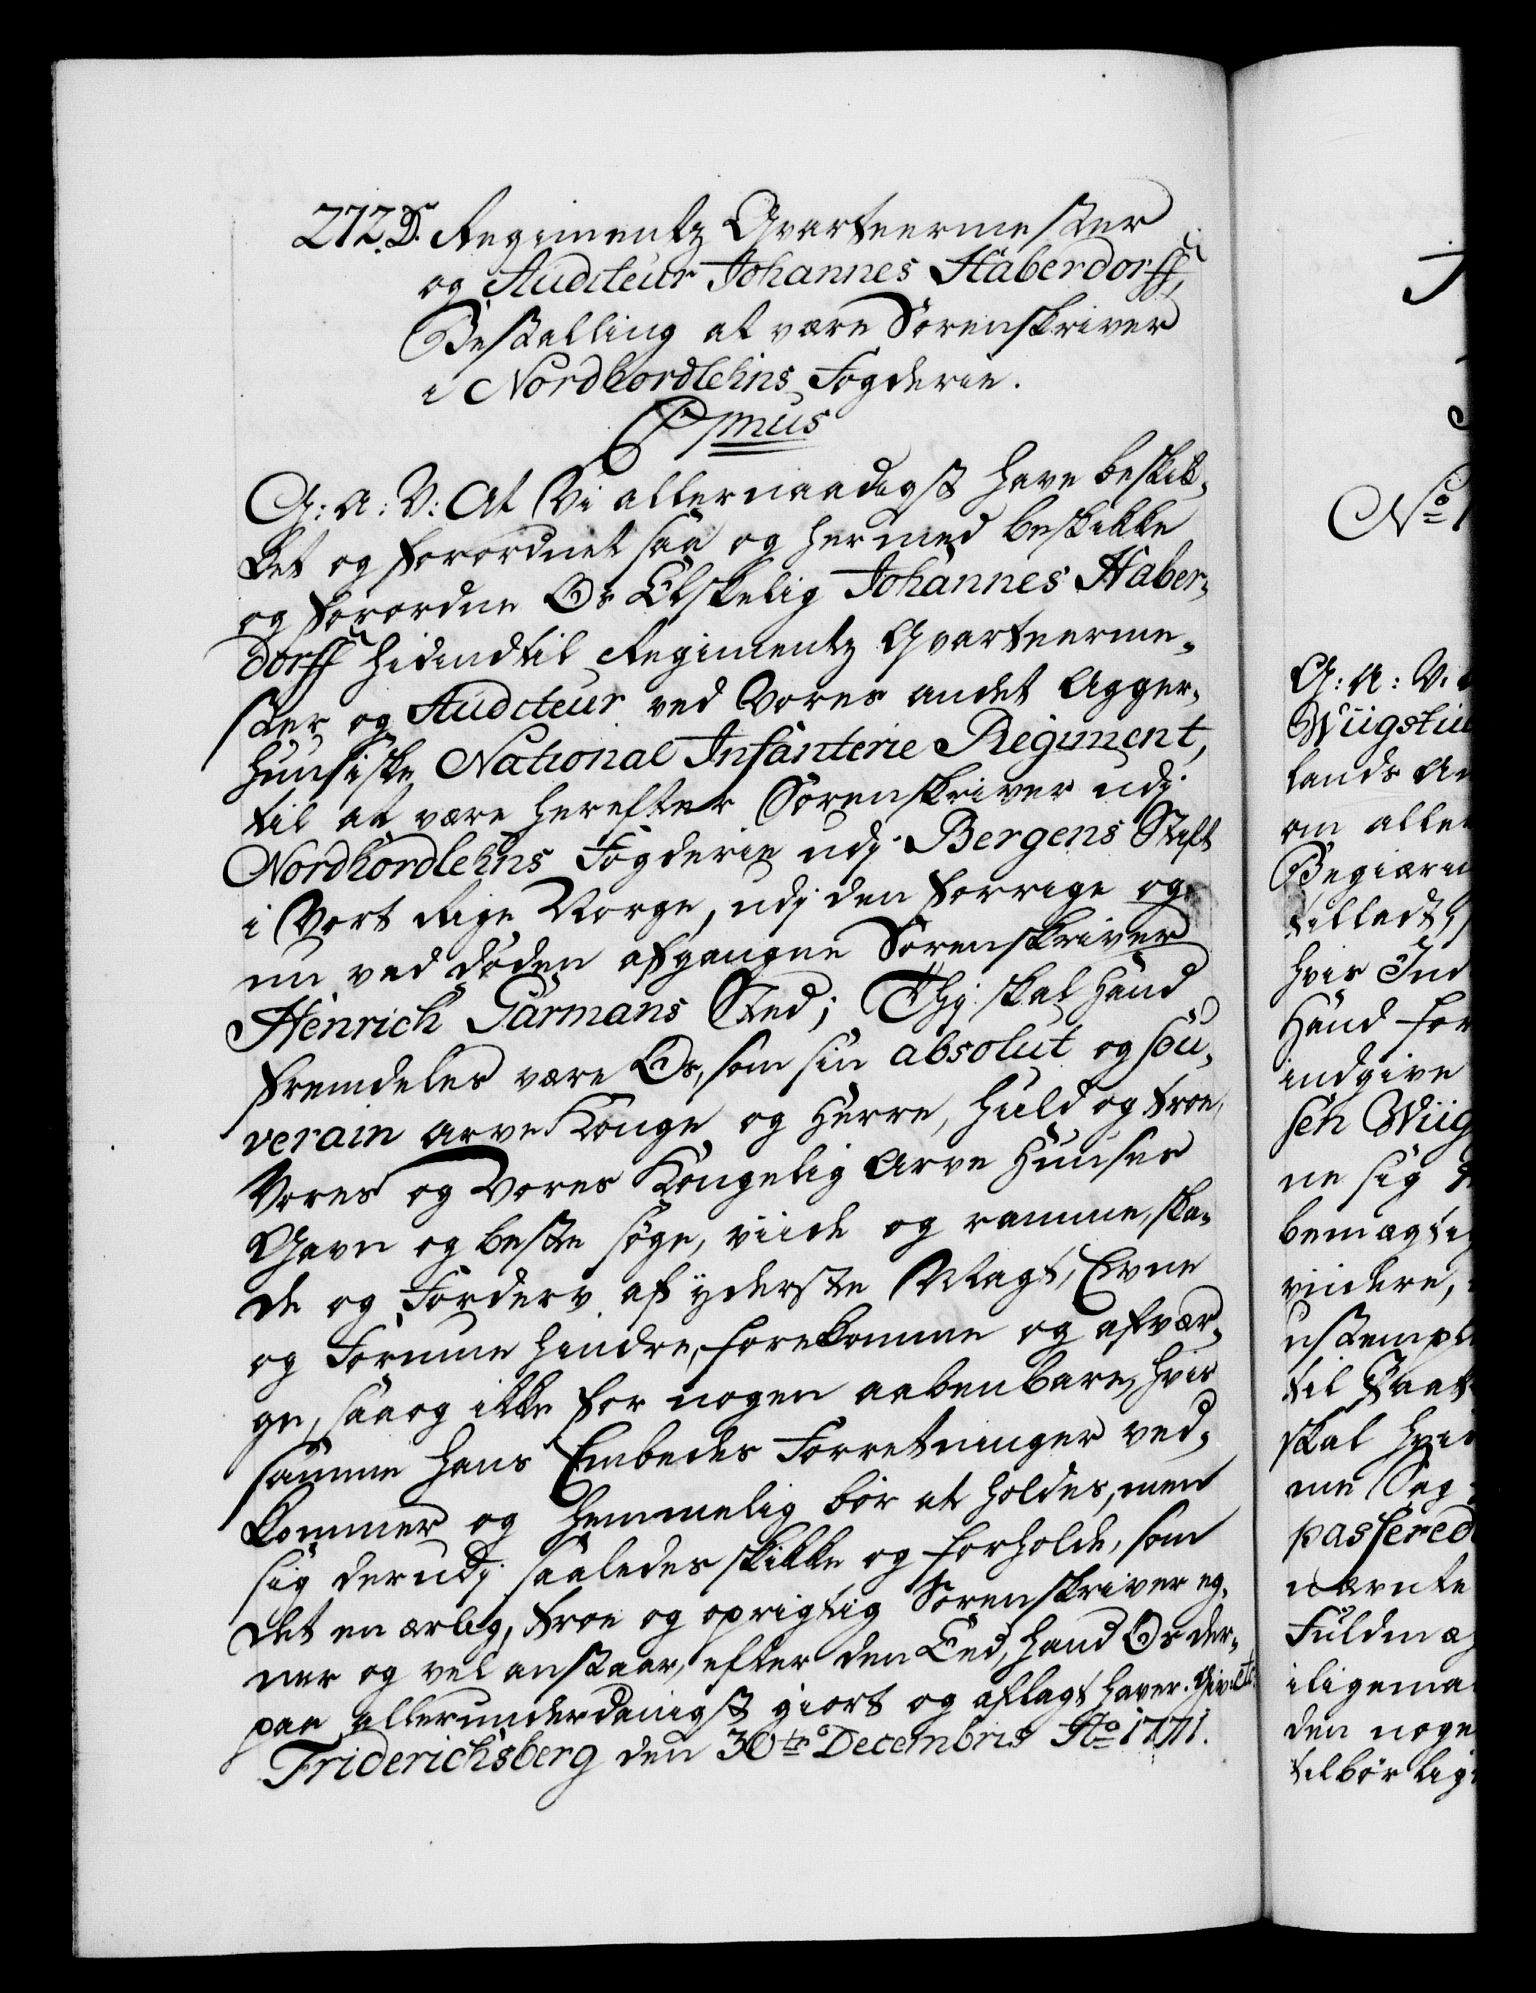 272. D. Regimentz Qvarteermester
og Auditeur Johannes Haberdorff,
Bestalling at være Sorenskriver
i Nordhordlehns Fogderie.
Cpmus
G: A: V: At Vi allernaadigst have beskik-
ket og forordnet saa og hermed beskikke
og forordne Os Elskelig Johannes Haber-
dorff hidindtil Regimentz Qvarteerme-
ster og Auditeur ved Vores andet Agger-
huusiske National Infanterie Regiment,
til at være herefter Sorenskriver udj
Nordhordlehns Fogderie udj Bergens Stift
i Vort Rige Norge, udj den forrige og
nu ved døden afgangne Sorenskriver
Henrich Garmans Sted; Thj skal hand
fremdeles være Os, som sin absolut og sou-
verain arve Konge og Herre, huld og troe,
Vores og Vores Kongelig Arve Huuses
Gavn og beste søge, viide og ramme, ska-
de og Forderv af yderste Magt, Evne
og Formue hindre, forekomme og afvær-
ge, saa og ikke for nogen aabenbare, hvis
samme hans Embedes Forretninger ved-
kommer og hemmelig bør at holdes, men
sig derudj saaledes skikke og forholde, som
det en ærlig, troe og oprigtig Sorenskriver eg-
ner og vel anstaar, efter den Eed, hand Os der-
paa allerunderdanigst giort og aflagt haver. Givet etc
Friderichsberg den 30te Decembris Ao 1771.
No 1
G: A: V.
lands
om alle
Begiær
tilladt,
hvis Ind
Hand for
indgive
sen Wiig
ne sig
bemægti
viidere,
til
skal hvis
me Sag
passered
nævnte
Fuldmæ
iligema
den noge
tilbørlig